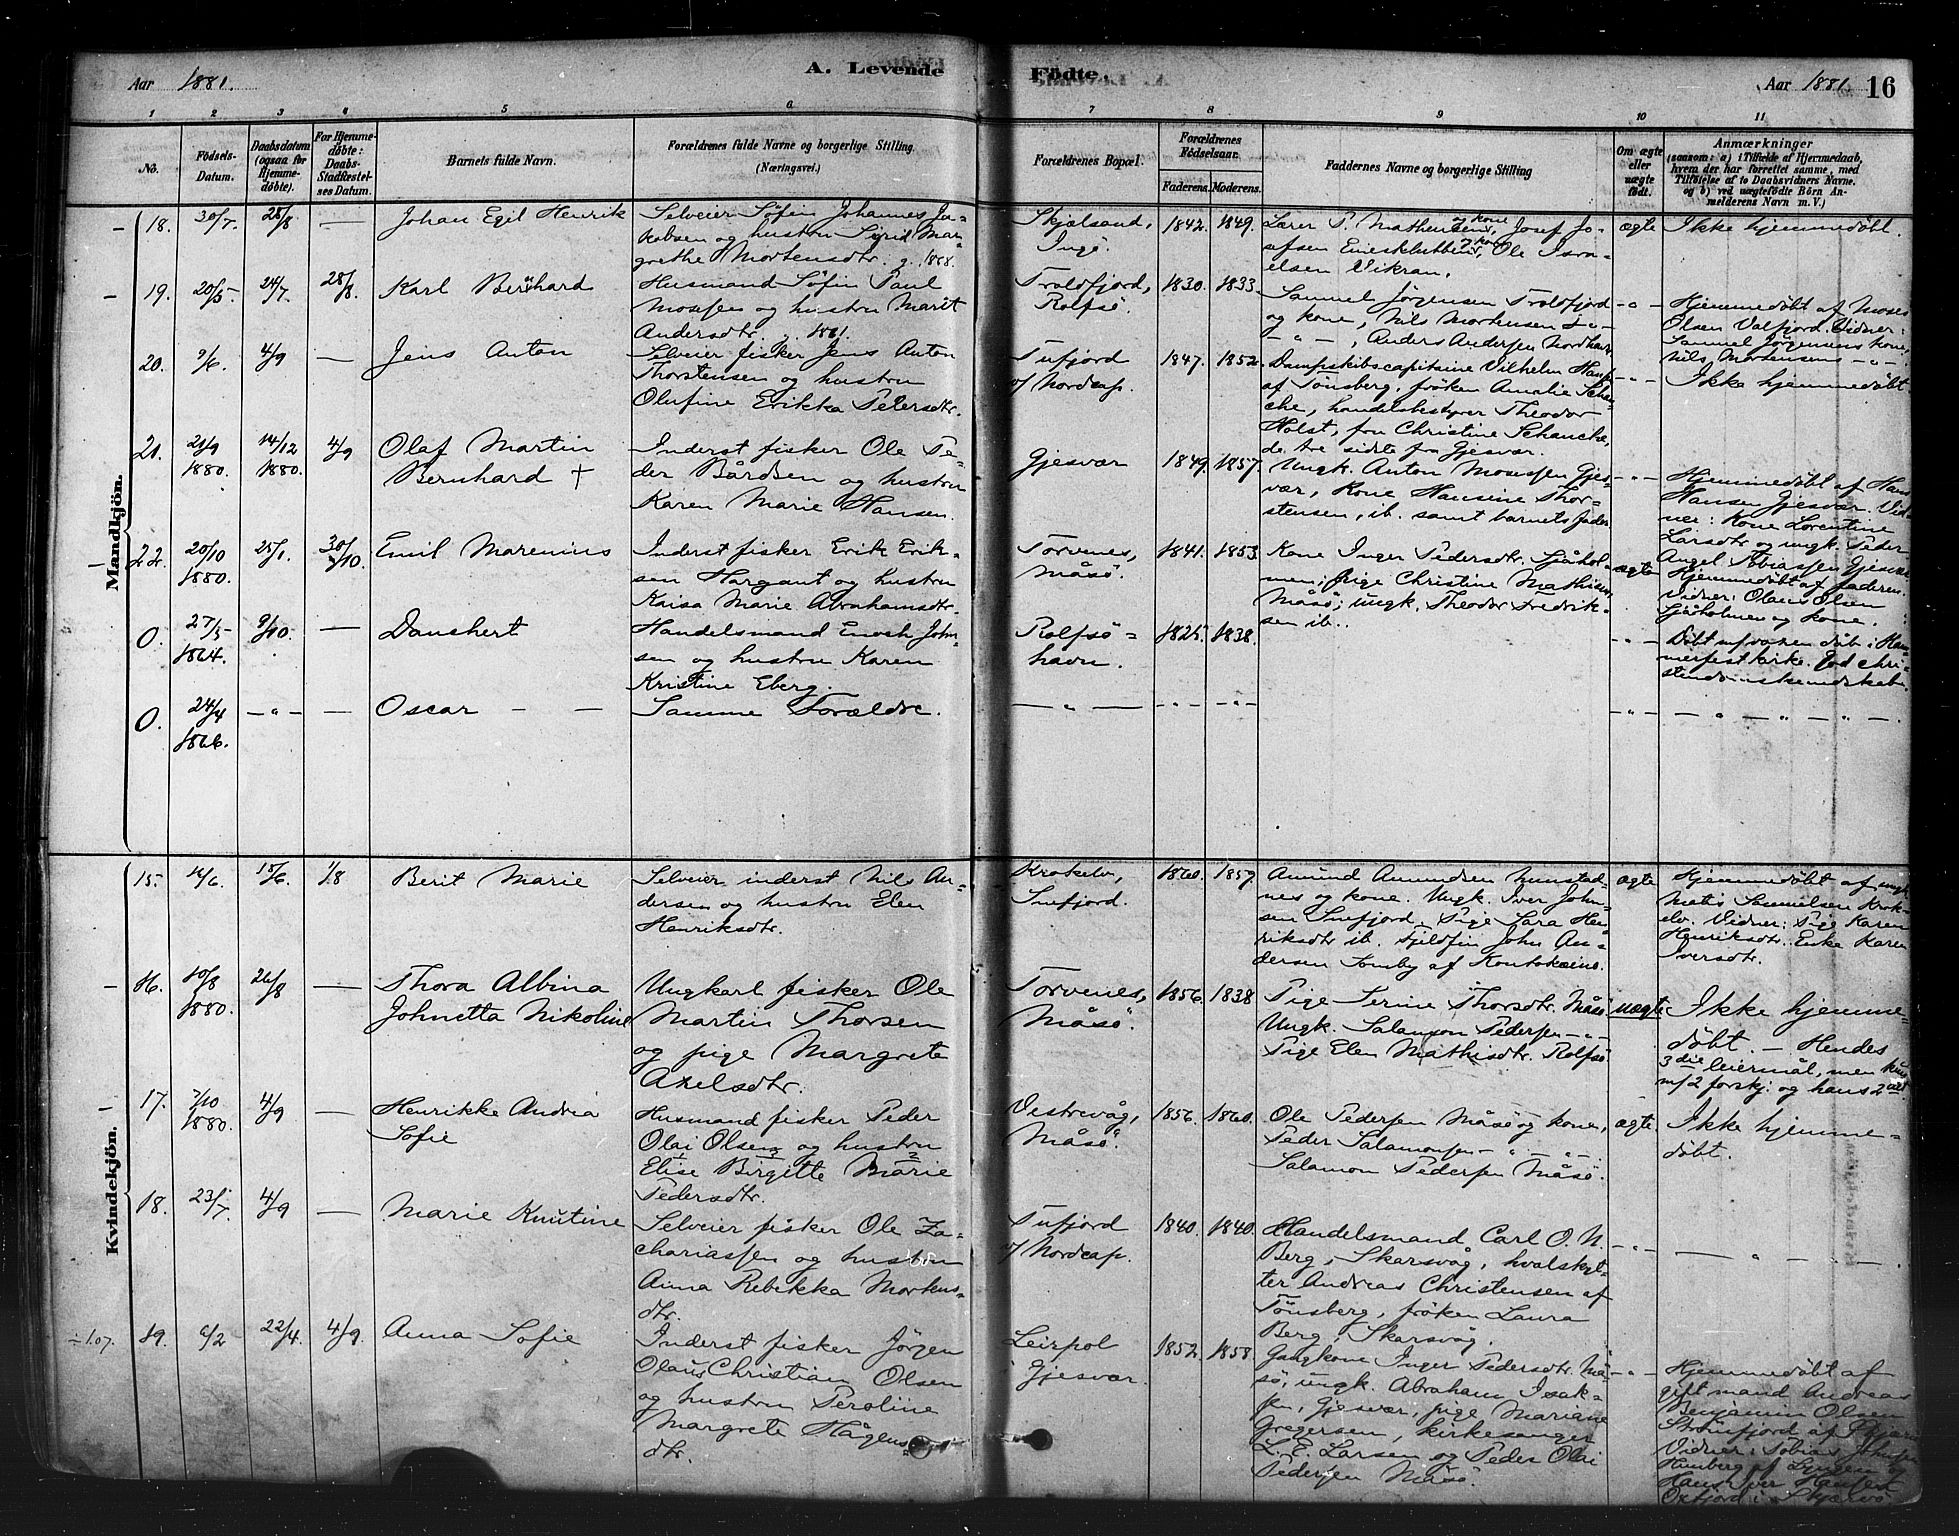 Aar 1881.
A. Levende
Födte.
Aar 1881.
16
1 2 3 4 5 6 7 8 9 10 11
No.
Födsels-Datum.
Daabsdatum (ogsaa for Hjemmedöbte).
For Hjemmedöbte: Daabs-Stadfæstelses Datum.
Barnets fulde Navn.
Forældrenes fulde Navne og borgerlige Stilling. (Næringsvei.)
Forældrenes Bopæl.
Forældrenes Födselsaar.
Faderens. Moderens.
Faddernes Navne og borgerlige Stilling
Om ægte eller uægte födt.
Anmærkninger
(saasom: a) i Tilfælde af Hjemmedaab, hvem der har forrettet samme, med Tilföielse af to Daabsvidners Navne, og b) ved uægtefödte Börn Anmelderens Navn m. V.)
Mandkjön.
18. 30/7. 28/8 — Johan Egil Henrik
Selveier Söfin Johannes Ja-
kobsen og hustru Sigrid Mar-
grethe Mortensdtr. g. 1868.
Skjælsand,
Ingö.
1842. 1849.
Lærer P. Mathiesen og kone, Josef Jo-
sefsen Eneskluben og kone, Ole Isra-
elsen Vikran.
ægte Ikke hjemmedöbt.
19. 20/5. 24/7. 28/8. Karl Bernhard
Husmand Söfin Paul
Mosesen og hustru Marit
Andersdtr. g. 1861.
Troldfjord,
Rolfsö.
1830. 1833.
Samuel Jörgensen Troldfjord
og kone, Nils Mortensen
— " —, Anders Andersen Nordhavn
— " — Hjemmedöbt af Moses
Olsen Valfjord. Vidner:
Samuel Jörgensens kone,
Nils Mortensens — " —
20. 9/6. 4/9 — Jens Anton
Selveier fisker Jens Anton
Thorstensen og hustru
Olufine Erikka Petersdtr.
Tufjord
v/ Nordcap.
1847. 1852.
Dampskibscapitaine Vilhelm
af Tönsberg, fröken Amalie Schan-
che, handelsbestyrer Theodor
Holst, fru Christine Schanche,
de tre sidste fra Gjesvær.
— " — Ikke hjemmedöbt.
21. 21/9 1880. 14/12 1880. 4/9 Olaf Martin
Bernhard +
Inderst fisker Ole Pe-
der Bårdsen og hustru
Karen Marie Hansen.
Gjesvær
1849. 1857.
Ungk. Anton Mosesen Gjes-
vær, Kone Hansine Thor-
stensen, ib. samt barnets fader
— " — Hjemmedöbt af Hans
Hansen Gjesvær. Vid-
ner: Kone Lorentine
Larsdtr og ungk. Peder
Angel Tobiassen Gjesvær
22. 20/10 1880. 25/1. 30/10. Emil Marenius
Inderst fisker Erik Erik-
sen Hargaut og hustru
Kaisa Marie Abrahamsdtr.
Torvenes,
Måsö.
1841. 1853
Kone Inger Pedersdtr. Sjåhol-
men; pige Christine Mathisen
Måsö; ungk. Theodor Fredrik-
sen ib..
ægte Hjemmedöbt af faderen.
Vidner: Olaus Olsen
Sjåholmen og kone.
O. 27/5 1864. 9/10. — Danchert
Handelsmand Enoch John-
sen og hustru Karen
Kristine Eberg.
Rolfsö-
havn.
1825. 1838.
— " — Döbt
merfest kirke.
O. 24/4 1866. — " — — Oscar — —
Samme Forældre.
— " — — " — — " — — " — — " — " — " —
Kvindekjön.
15. 14/6. 15/6. 1/8 Berit Marie
Selveier inderst Nils An-
dersen og hustru Elen
Henriksdtr.
Krokelv,
Snefjord.
1860. 1857
Amund Amundsen
nes og kone. Ungk. Iver John-
sen Snefjord. Pige Sara Hen-
riksdtr ib. Fjeldfin John An-
dersen Somby af Kautokeino.
ægte Hjemmedöbt af ungk.
Matis Samuelsen Krok-
elv. Vidner: Pige Karen
Henriksdtr. Enke Karen
Iversdtr.
16. 10/8 1880. 26/8 — Thora Albina
Johnetta Nikoline
Ungkarl fisker Ole
Martin Thorsen
og pige Margrete
Axelsdtr.
Torvenes,
Måsö.
1856. 1838
Pige Serine Thorsdtr. Måsö
Ungk. Salamon Pedersen — " —
Pige Elen Mathisdtr. Rolfsö
uægte Ikke hjemme-
döbt. — Hendes
3die leiermål, men kun
m/2 forskj. og hans 2det
17. 7/10 1880. 4/9 — Henrikke Andrea
Sofie
Husmand fisker Peder
Olai Olsen og hustru
Elise Birgitte Marie
Pedersdtr.
Vestrevåg,
Måsö.
1856. 1860.
Ole Pedersen Måsö og kone,
Peder Salamonsen — " — " —
Salamon Pedersen Måsö.
ægte. Ikke hjemme-
döbt.
18. 23/7. 4/9 — Marie Knutine
Selveier fisker Ole Za-
chariassen og hustru
Anna Rebekka Morkus-
dtr.
Tufjord
v/ Nordcap.
1840. 1840.
Handelsmand Carl O. N.
Berg, Skarsvåg, hvalskyt-
ter Andreas Christensen af
Tönsberg, fröken Laura
Berg, Skarsvåg.
— " — — " — .
÷107. 19. 6/2 22/4. 4/9. Anna Sofie
Inderst fisker Jörgen
Olaus Christian Olsen
og hustru Peroline
Margrete Hågens-
dtr.
Leirpol
Gjesvær.
1852. 1858
Gangkone Inger Pedersdtr. Må-
sö, ungk. Abraham Isak-
sen, Gjesvær, pige Mariane
Gregersen, kirkesanger
L. E. Larsen og Peder Olai
Pedersen Måsö.
— " — Hjemmedöbt af
gift mand Andreas
Benjamin Olsen
Straumfjord af Skjærvö
Vidner: Tobias Johnsen
af Lyngen og
Hans Iver Hansen
Oxfjord i Skjærvö